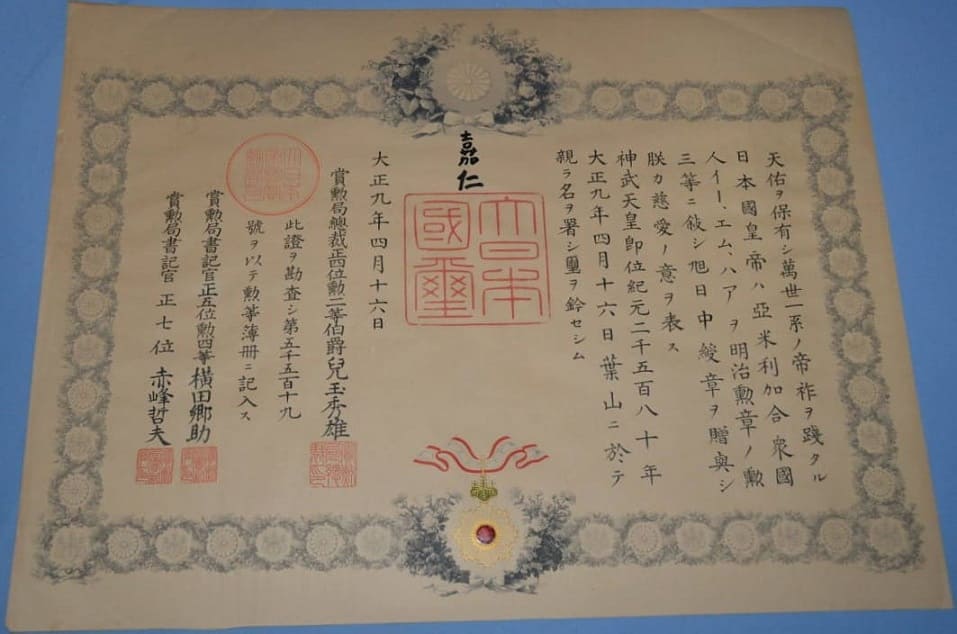 天佑ヲ保有シ萬世一系ノ帝祚ヲ踐タル
日本國皇帝ハ亞米利加合衆國
人イー、エム、ハアヲ明治勲章ノ勲
三等ニ敍シ旭日中綬章ヲ贈與シ
朕カ慈愛ノ意ヲ表ス
神武天皇即位紀元二千五百八十年
大正九年四月十六日葉山ニ於テ
親ラ名ヲ署シ璽ヲ鈐セシム
嘉仁
大日本
國璽
大正九年四月十六日
賞勲局總裁正四位勲二等伯爵兒玉秀雄
此證ヲ勘査シ第五千五百十九
號ヲ以テ勲等簿册ニ記入ス
賞勲局書記官正五位勲四等横田郷助
賞勲局書記官正七位赤峰哲夫